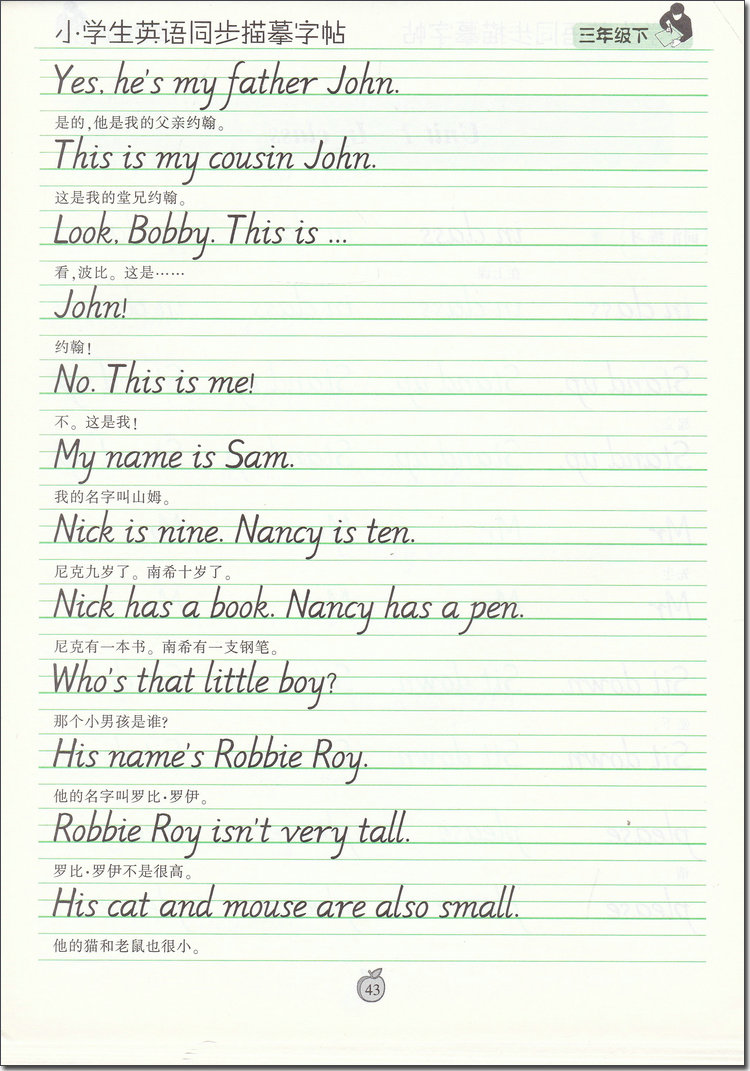 小学生英语同步描摹字帖
三年级下
Yes, he's my father John.
是的,他是我的父亲约翰。
This is my cousin John.
这是我的堂兄约翰。
Look, Bobby. This is ...
看,波比。这是……
John!
约翰!
No. This is me!
不。这是我!
My name is Sam.
我的名字叫山姆。
Nick is nine. Nancy is ten.
尼克九岁了。南希十岁了。
Nick has a book. Nancy has a pen.
尼克有一本书。南希有一支钢笔。
Who's that little boy?
那个小男孩是谁?
His name's Robbie Roy.
他的名字叫罗比·罗伊。
Robbie Roy isn't very tall.
罗比·罗伊不是很高。
His cat and mouse are also small.
他的猫和老鼠也很小。
43